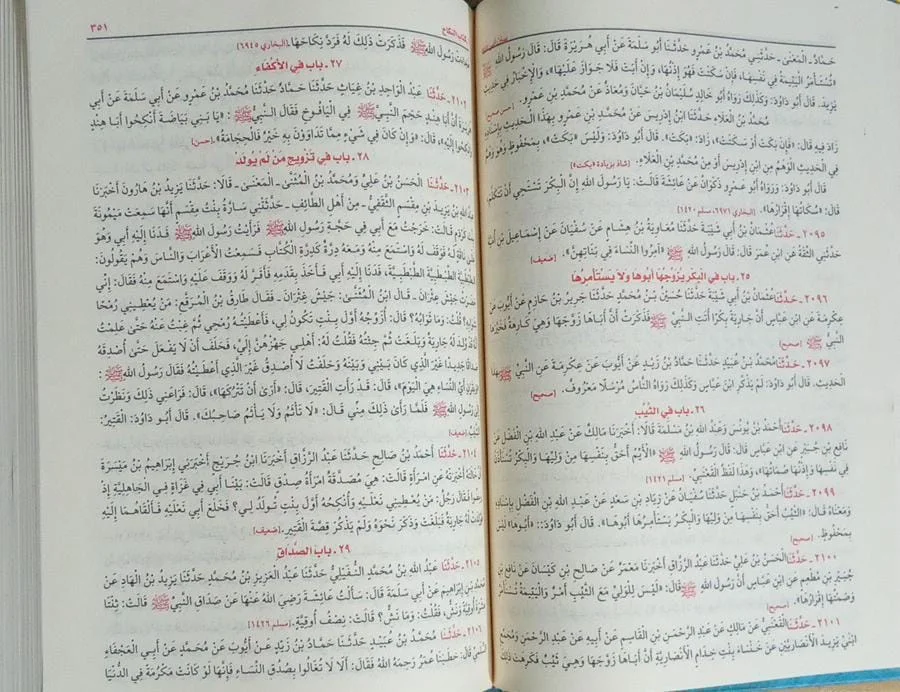 حَمَّادٌ ـ المَعْنَى ـ حَدَّثَنِي مُحَمَّدُ بْنُ عَمْرٍو حَدَّثَنَا أَبُو سَلَمَةَ عَنْ أَبِي هُرَيْرَةَ قَالَ: قَالَ رَسُولُ اللهِ ﷺ
«تُسْتَأْمَرُ الْيَتِيمَةُ فِي نَفْسِهَا، فَإِنْ سَكَتَتْ فَهُوَ إِذْنُهَا، وَإِنْ أَبَتْ فَلَا جَوَازَ عَلَيْهَا»، وَالإِخْبَارُ فِي حَدِيثِ
يَزِيدَ. قَالَ أَبُو دَاوُدَ: وَكَذَلِكَ رَوَاهُ أَبُو خَالِدٍ سُلَيْمَانُ بْنُ حَيَّانَ وَمُعَاذٌ عَنْ مُحَمَّدِ بْنِ عَمْرٍو.
مُحَمَّدُ بْنُ الْعَلَاءِ حَدَّثَنَا ابْنُ إِدْرِيسَ عَنْ مُحَمَّدِ بْنِ عَمْرٍو بِهَذَا الْحَدِيثِ بِإِسْنَادِهِ
زَادَ فِيهِ قَالَ: «فَإِنْ بَكَتْ أَوْ سَكَتَتْ»، زَادَ: «بَكَتْ». قَالَ أَبُو دَاوُدَ: وَلَيْسَ «بَكَتْ» بِمَحْفُوظٍ وَهُوَ وَهْمٌ
فِي الْحَدِيثِ الْوَهْمُ مِنِ ابْنِ إِدْرِيسَ أَوْ مِنْ مُحَمَّدِ بْنِ الْعَلَاءِ. (شاذ بزيادة «بكت»)
قَالَ أَبُو دَاوُدَ: وَرَوَاهُ أَبُو عَمْرٍو ذَكْوَانُ عَنْ عَائِشَةَ قَالَتْ: يَا رَسُولَ اللهِ إِنَّ الْبِكْرَ تَسْتَحِي أَنْ تَتَكَلَّمَ،
قَالَ: «سُكَاتُهَا إِقْرَارُهَا». (البخاري ٦٩٧١، مسلم ١٤٢٠)
٢٠٩٥ ـ حَدَّثَنَا عُثْمَانُ بْنُ أَبِي شَيْبَةَ حَدَّثَنَا مُعَاوِيَةُ بْنُ هِشَامٍ عَنْ سُفْيَانَ عَنْ إِسْمَاعِيلَ بْنِ
حَدَّثَنِي الثِّقَةُ عَنِ ابْنِ عُمَرَ قَالَ: قَالَ رَسُولُ اللهِ ﷺ: «آمِرُوا النِّسَاءَ فِي بَنَاتِهِنَّ». (ضعيف)
٢٥ ـ باب في البكر يُزَوِّجُهَا أبوها ولا يَسْتَأْمِرُهَا
٢٠٩٦ ـ حَدَّثَنَا عُثْمَانُ بْنُ أَبِي شَيْبَةَ حَدَّثَنَا حُسَيْنُ بْنُ مُحَمَّدٍ حَدَّثَنَا جَرِيرُ بْنُ حَازِمٍ عَنْ أَيُّوبَ عَنْ
عِكْرِمَةَ عَنِ ابْنِ عَبَّاسٍ أَنَّ جَارِيَةً بِكْرًا أَتَتِ النَّبِيَّ ﷺ فَذَكَرَتْ أَنَّ أَبَاهَا زَوَّجَهَا وَهِيَ كَارِهَةٌ فَخَيَّرَهَا
النَّبِيُّ ﷺ. (صحيح)
٢٠٩٧ ـ حَدَّثَنَا مُحَمَّدُ بْنُ عُبَيْدٍ حَدَّثَنَا حَمَّادُ بْنُ زَيْدٍ عَنْ أَيُّوبَ عَنْ عِكْرِمَةَ عَنِ النَّبِيِّ ﷺ بِهَذَا
الْحَدِيثِ. قَالَ أَبُو دَاوُدَ: لَمْ يَذْكُرِ ابْنَ عَبَّاسٍ وَكَذَلِكَ رَوَاهُ النَّاسُ مُرْسَلًا مَعْرُوفٌ. (صحيح)
٢٦ ـ باب في الثَّيِّب
٢٠٩٨ ـ حَدَّثَنَا أَحْمَدُ بْنُ يُونُسَ وَعَبْدُ اللهِ بْنُ مَسْلَمَةَ قَالَا: أَخْبَرَنَا مَالِكٌ عَنْ عَبْدِ اللهِ بْنِ الْفَضْلِ عَنْ
نَافِعِ بْنِ جُبَيْرٍ عَنِ ابْنِ عَبَّاسٍ قَالَ: قَالَ رَسُولُ اللهِ ﷺ «الأَيِّمُ أَحَقُّ بِنَفْسِهَا مِنْ وَلِيِّهَا وَالْبِكْرُ تُسْتَأْذَنُ
فِي نَفْسِهَا وَإِذْنُهَا صُمَاتُهَا»، وَهَذَا لَفْظُ الْقَعْنَبِيِّ. (مسلم ١٤٢١)
٢٠٩٩ ـ حَدَّثَنَا أَحْمَدُ بْنُ حَنْبَلٍ حَدَّثَنَا سُفْيَانُ عَنْ زِيَادِ بْنِ سَعْدٍ عَنْ عَبْدِ اللهِ بْنِ الْفَضْلِ بِإِسْنَادِهِ
وَمَعْنَاهُ قَالَ: «الثَّيِّبُ أَحَقُّ بِنَفْسِهَا مِنْ وَلِيِّهَا وَالْبِكْرُ يَسْتَأْمِرُهَا أَبُوهَا». قَالَ أَبُو دَاوُدَ: «أَبُوهَا» لَيْسَ
بِمَحْفُوظٍ. (صحيح)
٢١٠٠ ـ حَدَّثَنَا الْحَسَنُ بْنُ عَلِيٍّ حَدَّثَنَا عَبْدُ الرَّزَّاقِ أَخْبَرَنَا مَعْمَرٌ عَنْ صَالِحِ بْنِ كَيْسَانَ عَنْ نَافِعِ بْنِ
جُبَيْرِ بْنِ مُطْعِمٍ عَنِ ابْنِ عَبَّاسٍ أَنَّ رَسُولَ اللهِ ﷺ قَالَ: «لَيْسَ لِلْوَلِيِّ مَعَ الثَّيِّبِ أَمْرٌ وَالْيَتِيمَةُ تُسْتَأْمَرُ
وَصَمْتُهَا إِقْرَارُهَا». (صحيح)
٢١٠١ ـ حَدَّثَنَا الْقَعْنَبِيُّ عَنْ مَالِكٍ عَنْ عَبْدِ الرَّحْمَنِ بْنِ الْقَاسِمِ عَنْ أَبِيهِ عَنْ عَبْدِ الرَّحْمَنِ وَمُجَمِّعٍ
ابْنَيْ يَزِيدَ الأَنْصَارِيَّيْنِ عَنْ خَنْسَاءَ بِنْتِ خِذَامٍ الأَنْصَارِيَّةِ أَنَّ أَبَاهَا زَوَّجَهَا وَهِيَ ثَيِّبٌ فَكَرِهَتْ ذَلِكَ
كتاب النكاح
٣٥١
رَسُولَ اللهِ ﷺ فَذَكَرَتْ ذَلِكَ لَهُ فَرَدَّ نِكَاحَهَا. (البخاري ٦٩٤٥)
٢٧ ـ باب في الأكفاء
٢١٠٢ ـ حَدَّثَنَا عَبْدُ الْوَاحِدِ بْنُ غِيَاثٍ حَدَّثَنَا حَمَّادٌ حَدَّثَنَا مُحَمَّدُ بْنُ عَمْرٍو عَنْ أَبِي سَلَمَةَ عَنْ أَبِي
أَنَّ أَبَا هِنْدٍ حَجَمَ النَّبِيَّ ﷺ فِي الْيَافُوخِ فَقَالَ النَّبِيُّ ﷺ: «يَا بَنِي بَيَاضَةَ أَنْكِحُوا أَبَا هِنْدٍ
وَأَنْكِحُوا إِلَيْهِ»، قَالَ: «وَإِنْ كَانَ فِي شَيْءٍ مِمَّا تَدَاوَوْنَ بِهِ خَيْرٌ فَالْحِجَامَةُ». (حسن)
٢٨ ـ باب في تزويج من لم يُولد
٢١٠٣ ـ حَدَّثَنَا الْحَسَنُ بْنُ عَلِيٍّ وَمُحَمَّدُ بْنُ الْمُثَنَّى ـ الْمَعْنَى ـ قَالَا: حَدَّثَنَا يَزِيدُ بْنُ هَارُونَ أَخْبَرَنَا
عَبْدُ اللهِ بْنُ يَزِيدَ بْنِ مِقْسَمٍ الثَّقَفِيُّ ـ مِنْ أَهْلِ الطَّائِفِ ـ حَدَّثَتْنِي سَارَةُ بِنْتُ مِقْسَمٍ أَنَّهَا سَمِعَتْ مَيْمُونَةَ
بِنْتَ كَرْدَمٍ قَالَتْ: خَرَجْتُ مَعَ أَبِي فِي حَجَّةِ رَسُولِ اللهِ ﷺ فَرَأَيْتُ رَسُولَ اللهِ ﷺ، فَدَنَا إِلَيْهِ أَبِي وَهُوَ
عَلَى نَاقَةٍ لَهُ فَوَقَفَ لَهُ وَاسْتَمَعَ مِنْهُ وَمَعَهُ دِرَّةٌ كَدِرَّةِ الْكُتَّابِ فَسَمِعْتُ الأَعْرَابَ وَالنَّاسَ وَهُمْ يَقُولُونَ:
الطَّبْطَبِيَّةَ الطَّبْطَبِيَّةَ الطَّبْطَبِيَّةَ، فَدَنَا إِلَيْهِ أَبِي فَأَخَذَ بِقَدَمِهِ فَأَقَرَّ لَهُ وَوَقَفَ عَلَيْهِ وَاسْتَمَعَ مِنْهُ فَقَالَ: إِنِّي
جَيْشَ عِثْرَانَ ـ قَالَ ابْنُ الْمُثَنَّى: جَيْشَ غِثْرَانَ ـ فَقَالَ طَارِقُ بْنُ الْمُرَقَّعِ: مَنْ يُعْطِينِي رُمْحًا
قُلْتُ: وَمَا ثَوَابُهُ؟ قَالَ: أُزَوِّجُهُ أَوَّلَ بِنْتٍ تَكُونُ لِي، فَأَعْطَيْتُهُ رُمْحِي ثُمَّ غِبْتُ عَنْهُ حَتَّى عَلِمْتُ
أَنَّهُ قَدْ وُلِدَ لَهُ جَارِيَةٌ وَبَلَغَتْ ثُمَّ جِئْتُهُ فَقُلْتُ لَهُ: أَهْلِي جَهِّزْهُنَّ إِلَيَّ، فَحَلَفَ أَنْ لَا يَفْعَلَ حَتَّى أُصْدِقَهُ
صَدَاقًا جَدِيدًا غَيْرَ الَّذِي كَانَ بَيْنِي وَبَيْنَهُ وَحَلَفْتُ لَا أُصْدِقُ غَيْرَ الَّذِي أَعْطَيْتُهُ فَقَالَ رَسُولُ اللهِ ﷺ:
أَيِّ النِّسَاءِ هِيَ الْيَوْمَ»، قَالَ: قَدْ رَأَتِ الْقَتِيرَ، قَالَ: «أَرَى أَنْ تَتْرُكَهَا»، قَالَ: فَرَاعَنِي ذَلِكَ وَنَظَرْتُ
إِلَى رَسُولِ اللهِ ﷺ فَلَمَّا رَأَى ذَلِكَ مِنِّي قَالَ: «لَا تَأْثَمُ وَلَا يَأْثَمُ صَاحِبُكَ». قَالَ أَبُو دَاوُدَ: الْقَتِيرُ:
الشَّيْبُ. (ضعيف)
٢١٠٤ ـ حَدَّثَنَا أَحْمَدُ بْنُ صَالِحٍ حَدَّثَنَا عَبْدُ الرَّزَّاقِ أَخْبَرَنَا ابْنُ جُرَيْجٍ أَخْبَرَنِي إِبْرَاهِيمُ بْنُ مَيْسَرَةَ
أَنَّ خَالَتَهُ أَخْبَرَتْهُ عَنِ امْرَأَةٍ قَالَتْ: هِيَ مُصَدَّقَةٌ امْرَأَةُ صِدْقٍ قَالَتْ: بَيْنَا أَبِي فِي غَزَاةٍ فِي الْجَاهِلِيَّةِ إِذْ
رَمِضُوا فَقَالَ رَجُلٌ: مَنْ يُعْطِينِي نَعْلَيْهِ وَأُنْكِحُهُ أَوَّلَ بِنْتٍ تُولَدُ لِي؟ فَخَلَعَ أَبِي نَعْلَيْهِ فَأَلْقَاهُمَا إِلَيْهِ
لَهُ جَارِيَةٌ فَبَلَغَتْ وَذَكَرَ نَحْوَهُ وَلَمْ يَذْكُرْ قِصَّةَ الْقَتِيرِ. (ضعيف)
٢٩ ـ باب الصَّدَاقِ
٢١٠٥ ـ حَدَّثَنَا عَبْدُ اللهِ بْنُ مُحَمَّدٍ النُّفَيْلِيُّ حَدَّثَنَا عَبْدُ الْعَزِيزِ بْنُ مُحَمَّدٍ حَدَّثَنَا يَزِيدُ بْنُ الْهَادِ عَنْ
مُحَمَّدِ بْنِ إِبْرَاهِيمَ عَنْ أَبِي سَلَمَةَ قَالَ: سَأَلْتُ عَائِشَةَ رَضِيَ اللهُ عَنْهَا عَنْ صَدَاقِ النَّبِيِّ ﷺ قَالَتْ: ثِنْتَا
عَشْرَةَ أُوقِيَّةً وَنَشٌّ، فَقُلْتُ: وَمَا نَشٌّ؟ قَالَتْ: نِصْفُ أُوقِيَّةٍ. (مسلم ١٤٢٦)
٢١٠٦ ـ حَدَّثَنَا مُحَمَّدُ بْنُ عُبَيْدٍ حَدَّثَنَا حَمَّادُ بْنُ زَيْدٍ عَنْ أَيُّوبَ عَنْ مُحَمَّدٍ عَنْ أَبِي الْعَجْفَاءِ
قَالَ: خَطَبَنَا عُمَرُ رَحِمَهُ اللهُ فَقَالَ: أَلَا لَا تُغَالُوا بِصُدُقِ النِّسَاءِ فَإِنَّهَا لَوْ كَانَتْ مَكْرُمَةً فِي الدُّنْيَا